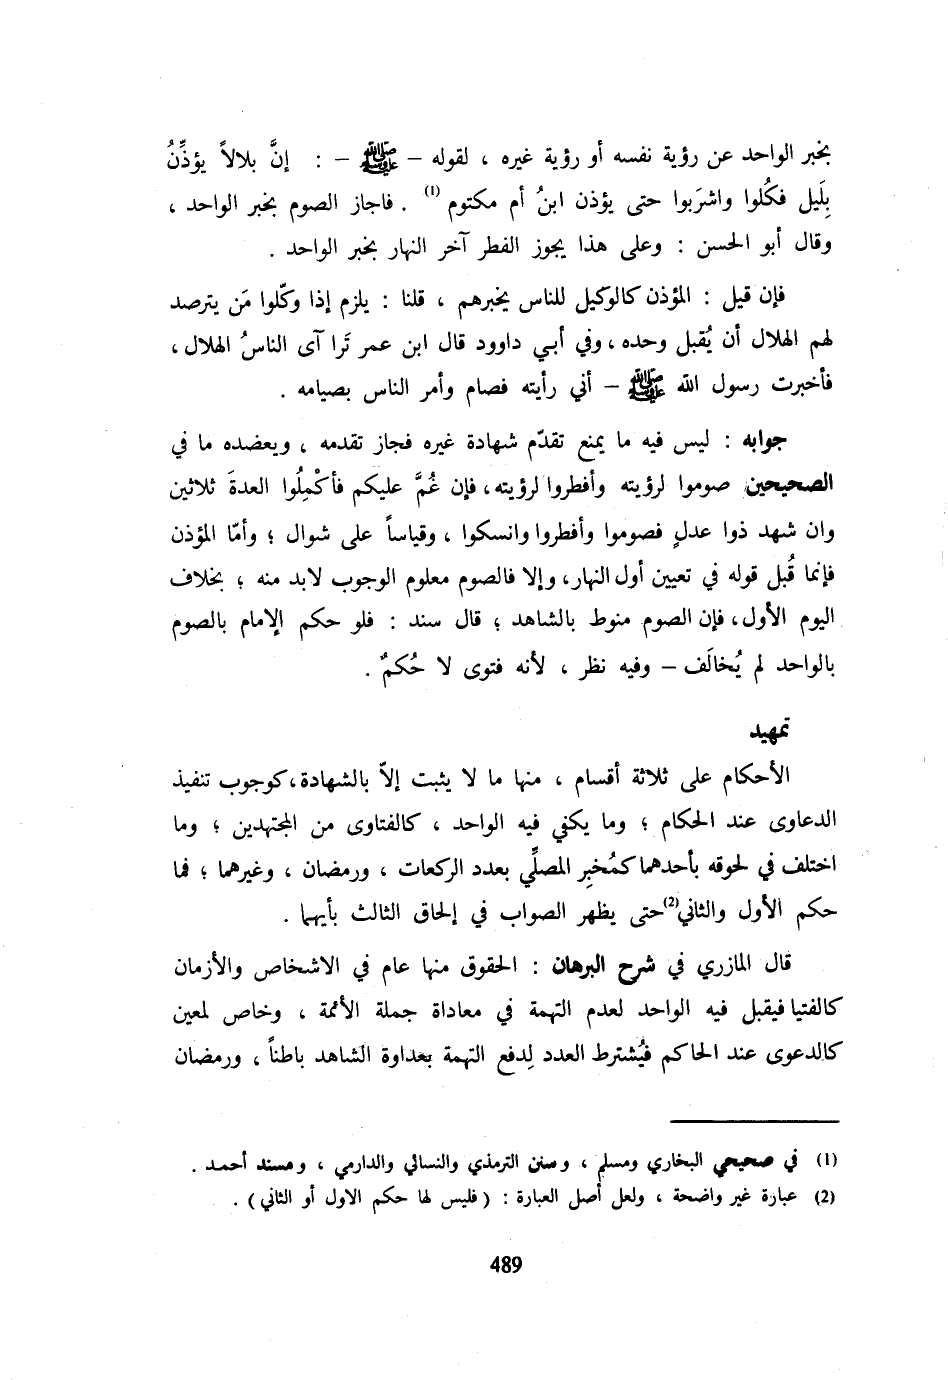 بخبر الواحد عن رؤية نفسه أو رؤية غيره ، لقوله – ﷺ – : إنَّ بلالاً يؤذِّنُ
بِلَيل فكُلوا واشرَبوا حتى يؤذن ابنُ أم مكتوم (1) . فاجاز الصوم بخبر الواحد ،
وقال أبو الحسن : وعلى هذا يجوز الفطر آخر النهار بخبر الواحد .
فإن قيل : المؤذن كالوكيل للناس يخبرهم ، قلنا : يلزم إذا وكّلوا مَن يترصد
لهم الهلال أن يُقبل وحده ، وفي أبي داوود قال ابن عمر تَرا آى الناسُ الهلال ،
فأخبرت رسول الله ﷺ – أني رأيته فصام وأمر الناس بصيامه .
جوابه : ليس فيه ما يمنع تقدّم شهادة غيره فجاز تقدمه ، ويعضده ما في
الصحيحين صوموا لرؤيته وأفطروا لرؤيته ، فإن غُمَّ عليكم فأكْمِلُوا العدةَ ثلاثين
وان شهد ذوا عدلٍ فصوموا وأفطروا وانسكوا ، وقياساً على شوال ؛ وأمّا المؤذن
فإنما قُبل قوله في تعيين أول النهار، وإلا فالصوم معلوم الوجوب لابد منه ؛ بخلاف
اليوم الأول، فإن الصوم منوط بالشاهد ؛ قال سند : فلو حكم الإمام بالصوم
بالواحد لم يُخالَف – وفيه نظر ، لأنه فتوى لا حُكمٌ .
تمهيد
الأحكام على ثلاثة أقسام ، منها ما لا يثبت إلاّ بالشهادة، كوجوب تنفيذ
الدعاوى عند الحكام ؛ وما يكفي فيه الواحد ، كالفتاوى من المجتهدين ؛ وما
اختلف في لحوقه بأحدهما كمُخبِر المصلِّي بعدد الركعات ، ورمضان ، وغيرهما ؛ فما
حكم الأول والثاني(2) حتى يظهر الصواب في إلحاق الثالث بأيهما .
قال المازري في شرح البرهان : الحقوق منها عام في الاشخاص والأزمان
كالفتيا فيقبل فيه الواحد لعدم التهمة في معاداة جملة الأئمة ، وخاص لمعين
كالدعوى عند الحاكم فيُشترط العدد لِدفع التهمة بعداوة الشاهد باطناً ، ورمضان
(1) في صحيحي البخاري ومسلم ، وسنن الترمذي والنسائي والدارمي ، ومسند أحمد .
(2) عبارة غير واضحة ، ولعل أصل العبارة : ( فليس لها حكم الاول أو الثاني ) .
489